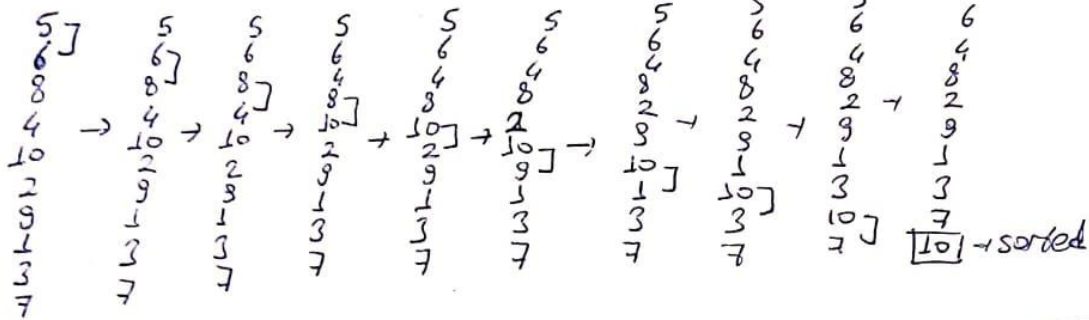 5 ]
6
8
4 →
10
2
9
1
3
7
5
6 ]
8
4 →
10
2
9
1
3
7
5
6
8 ]
4
10 →
2
9
1
3
7
5
6
4
8 ]
10 →
2
9
1
3
7
5
6
4
8
10 ] →
2
9
1
3
7
5
6
4
8
2
10 ] →
9
1
3
7
5
6
4
8
2 →
9
10 ]
1
3
7
6
4
8
2 →
9
1
10 ]
3
7
6
4
8
2 →
9
1
3
10 ]
7
6
4
8
2
9
1
3
7
10 → sorted